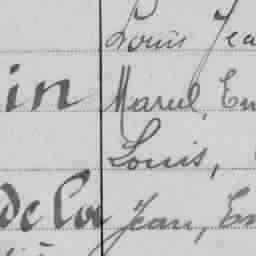 Louis Jea
in Marcel, Em
Louis,
de la Jean, Em